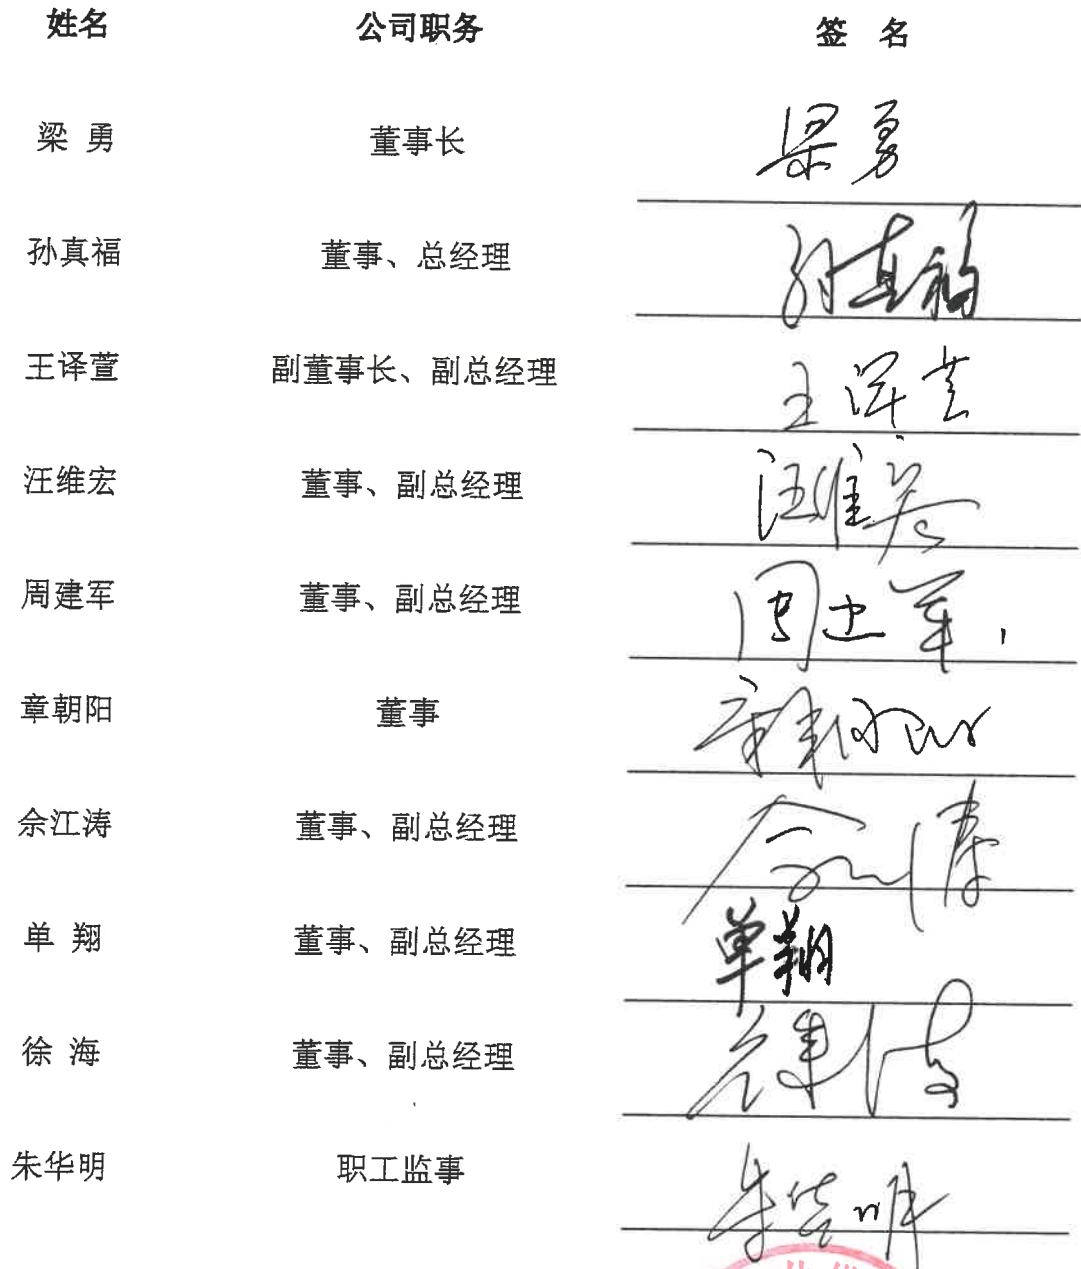 姓名 公司职务 签 名
梁 勇 董事长 梁勇
孙真福 董事、总经理 孙真福
王译萱 副董事长、副总经理 王译萱
汪维宏 董事、副总经理 汪维宏
周建军 董事、副总经理 周建军
章朝阳 董事 章朝阳
佘江涛 董事、副总经理 佘江涛
单 翔 董事、副总经理 单翔
徐 海 董事、副总经理 徐海
朱华明 职工监事 朱华明